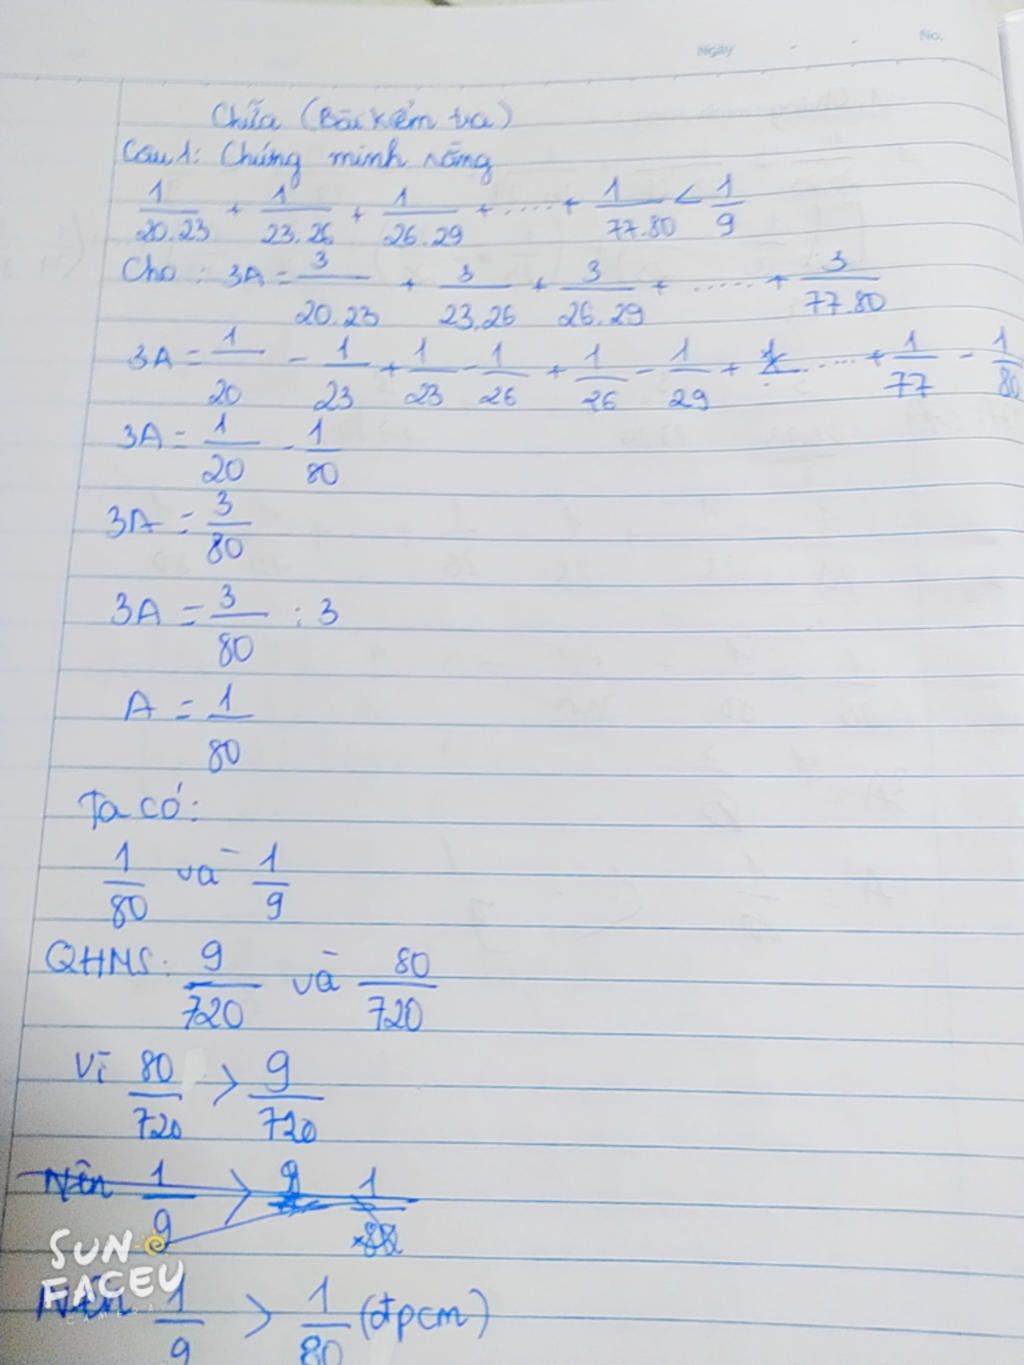 Ngày - - No.
Chữa (Bài kiểm tra)
Câu 1: Chứng minh rằng
1/20.23 + 1/23.26 + 1/26.29 + ..... + 1/77.80 < 1/9
Cho: 3A = 3/20.23 + 3/23.26 + 3/26.29 + ..... + 3/77.80
3A = 1/20 - 1/23 + 1/23 - 1/26 + 1/26 - 1/29 + ..... + 1/77 - 1/80
3A = 1/20 - 1/80
3A = 3/80
3A = 3/80 : 3
A = 1/80
Ta có:
1/80 và 1/9
QHMS: 9/720 và 80/720
Vì 80/720 > 9/720
Nên 1/9 > 1
Nên 1/9 > 1/80 (đpcm)
SUN
FACEU
CAMERA